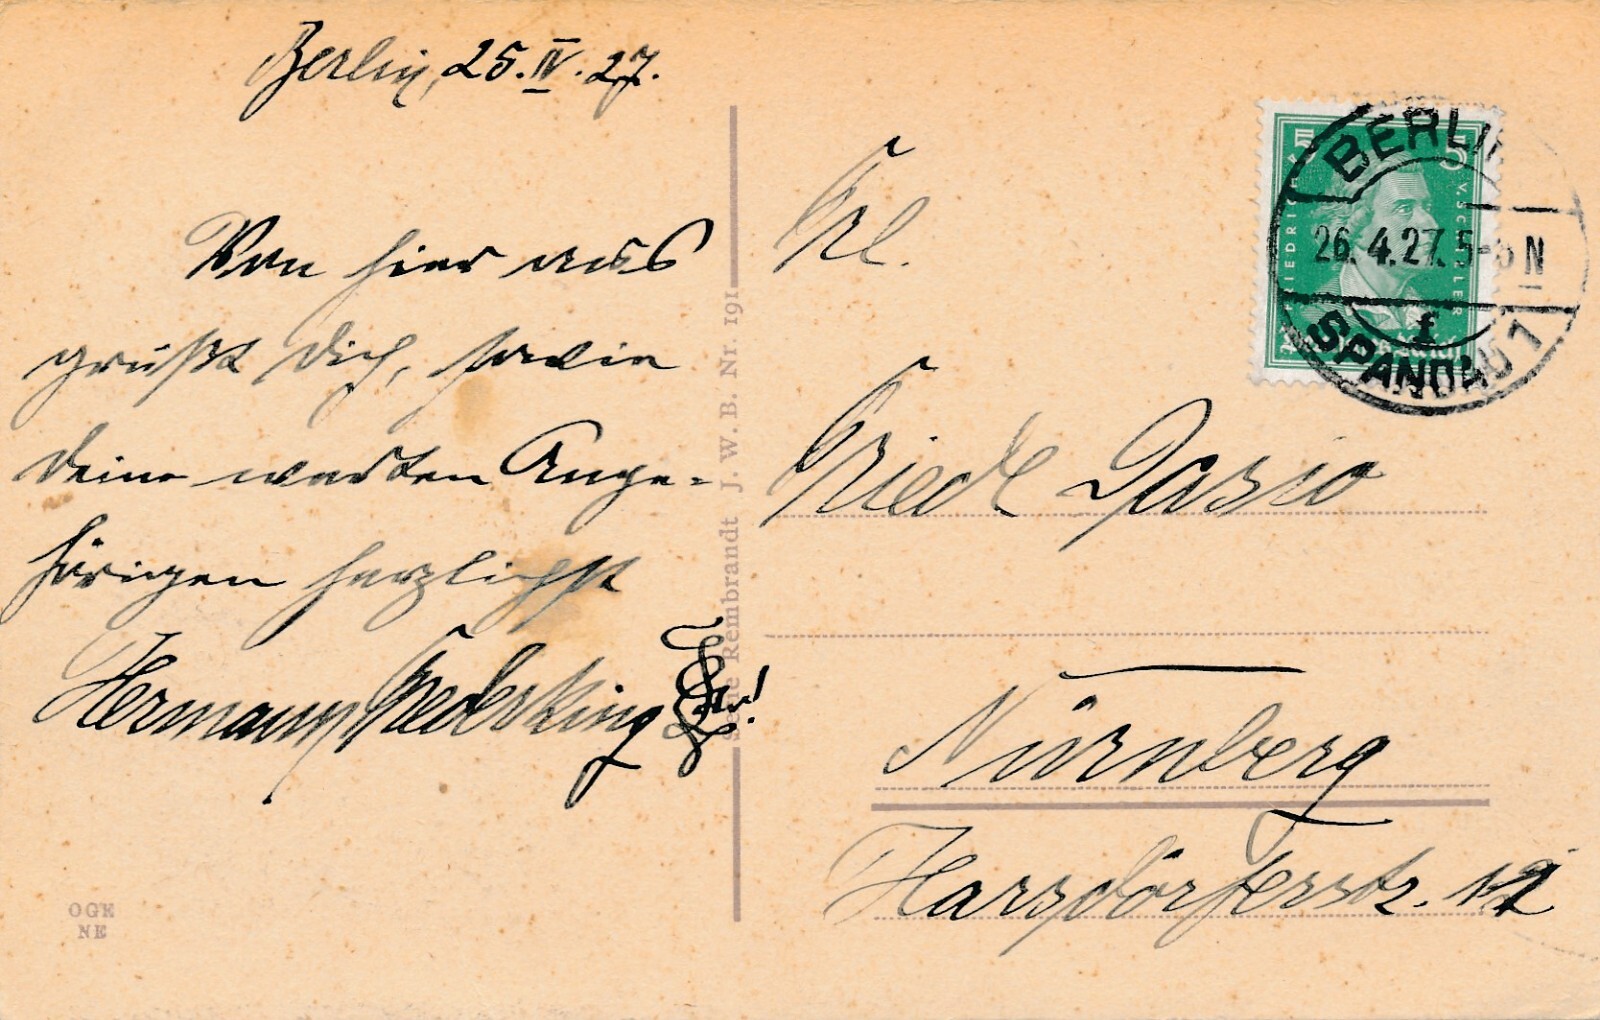 Berlin, 25.IV.27.
Von hier aus
grüßt Dich, sowie
Deine werten Ange-
hörigen herzlichst
Hermann Frederking
Frl.
Friedl Dassio
Nürnberg
Harsdörferstr. 12
BERLIN
26.4.27.5-6 N
f
SPANDAU 1
5
FRIEDRICH V. SCHILLER
5
Serie Rembrandt J. W. B. Nr. 191
OGE
NE